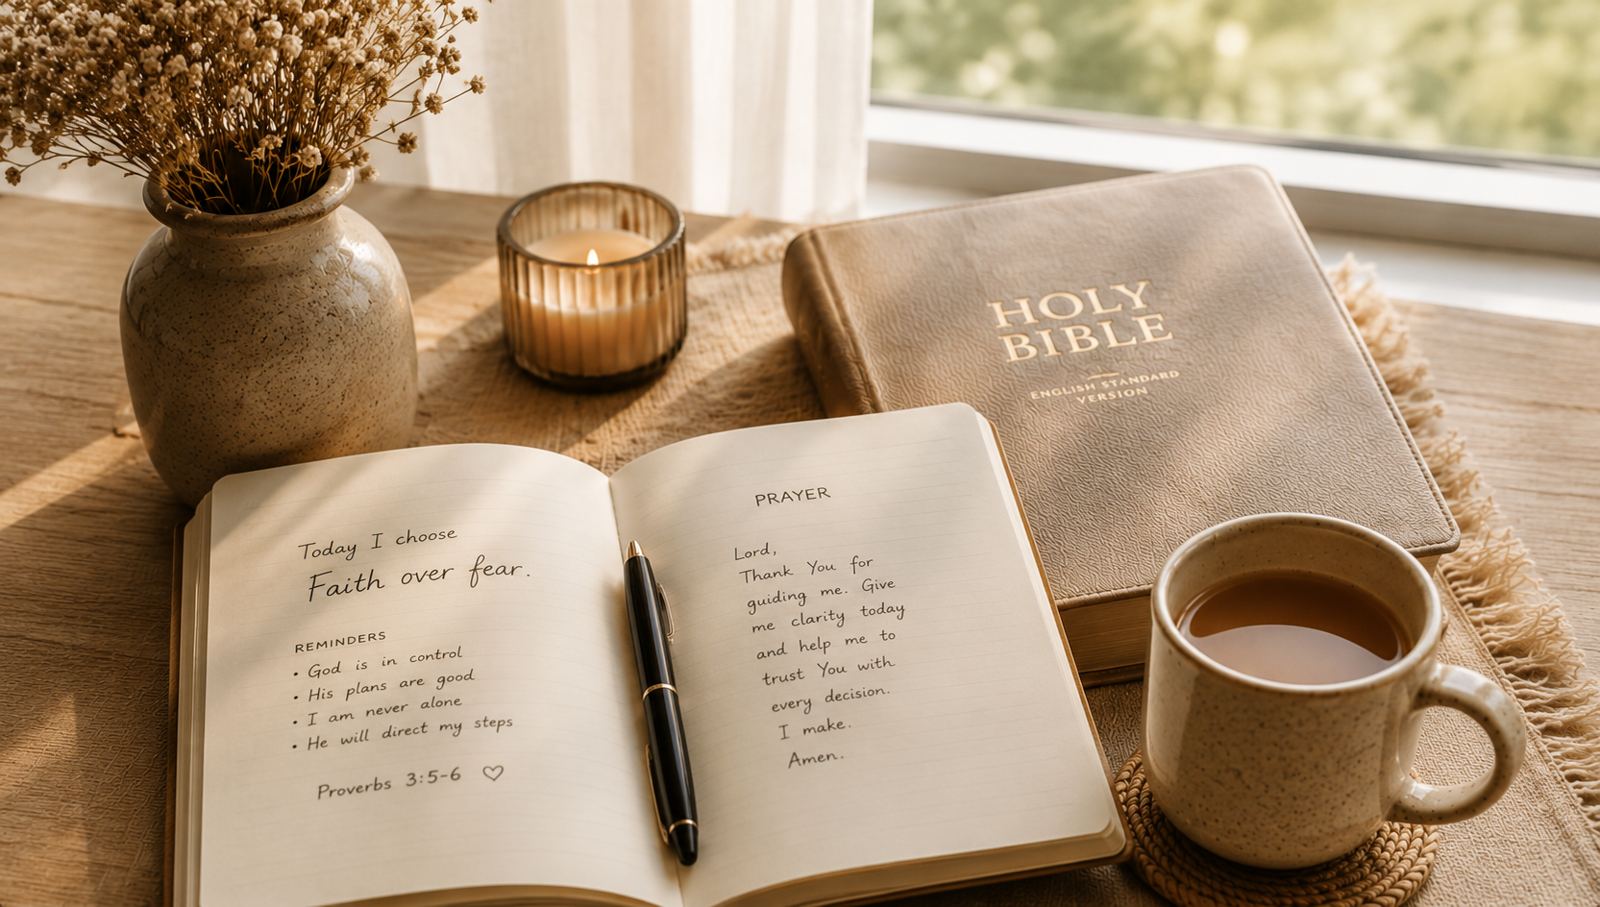 HOLY
BIBLE
ENGLISH STANDARD
VERSION
Today I choose
Faith over fear.
REMINDERS
• God is in control
• His plans are good
• I am never alone
• He will direct my steps
Proverbs 3:5-6 ♡
PRAYER
Lord,
Thank You for
guiding me. Give
me clarity today
and help me to
trust You with
every decision.
I make.
Amen.